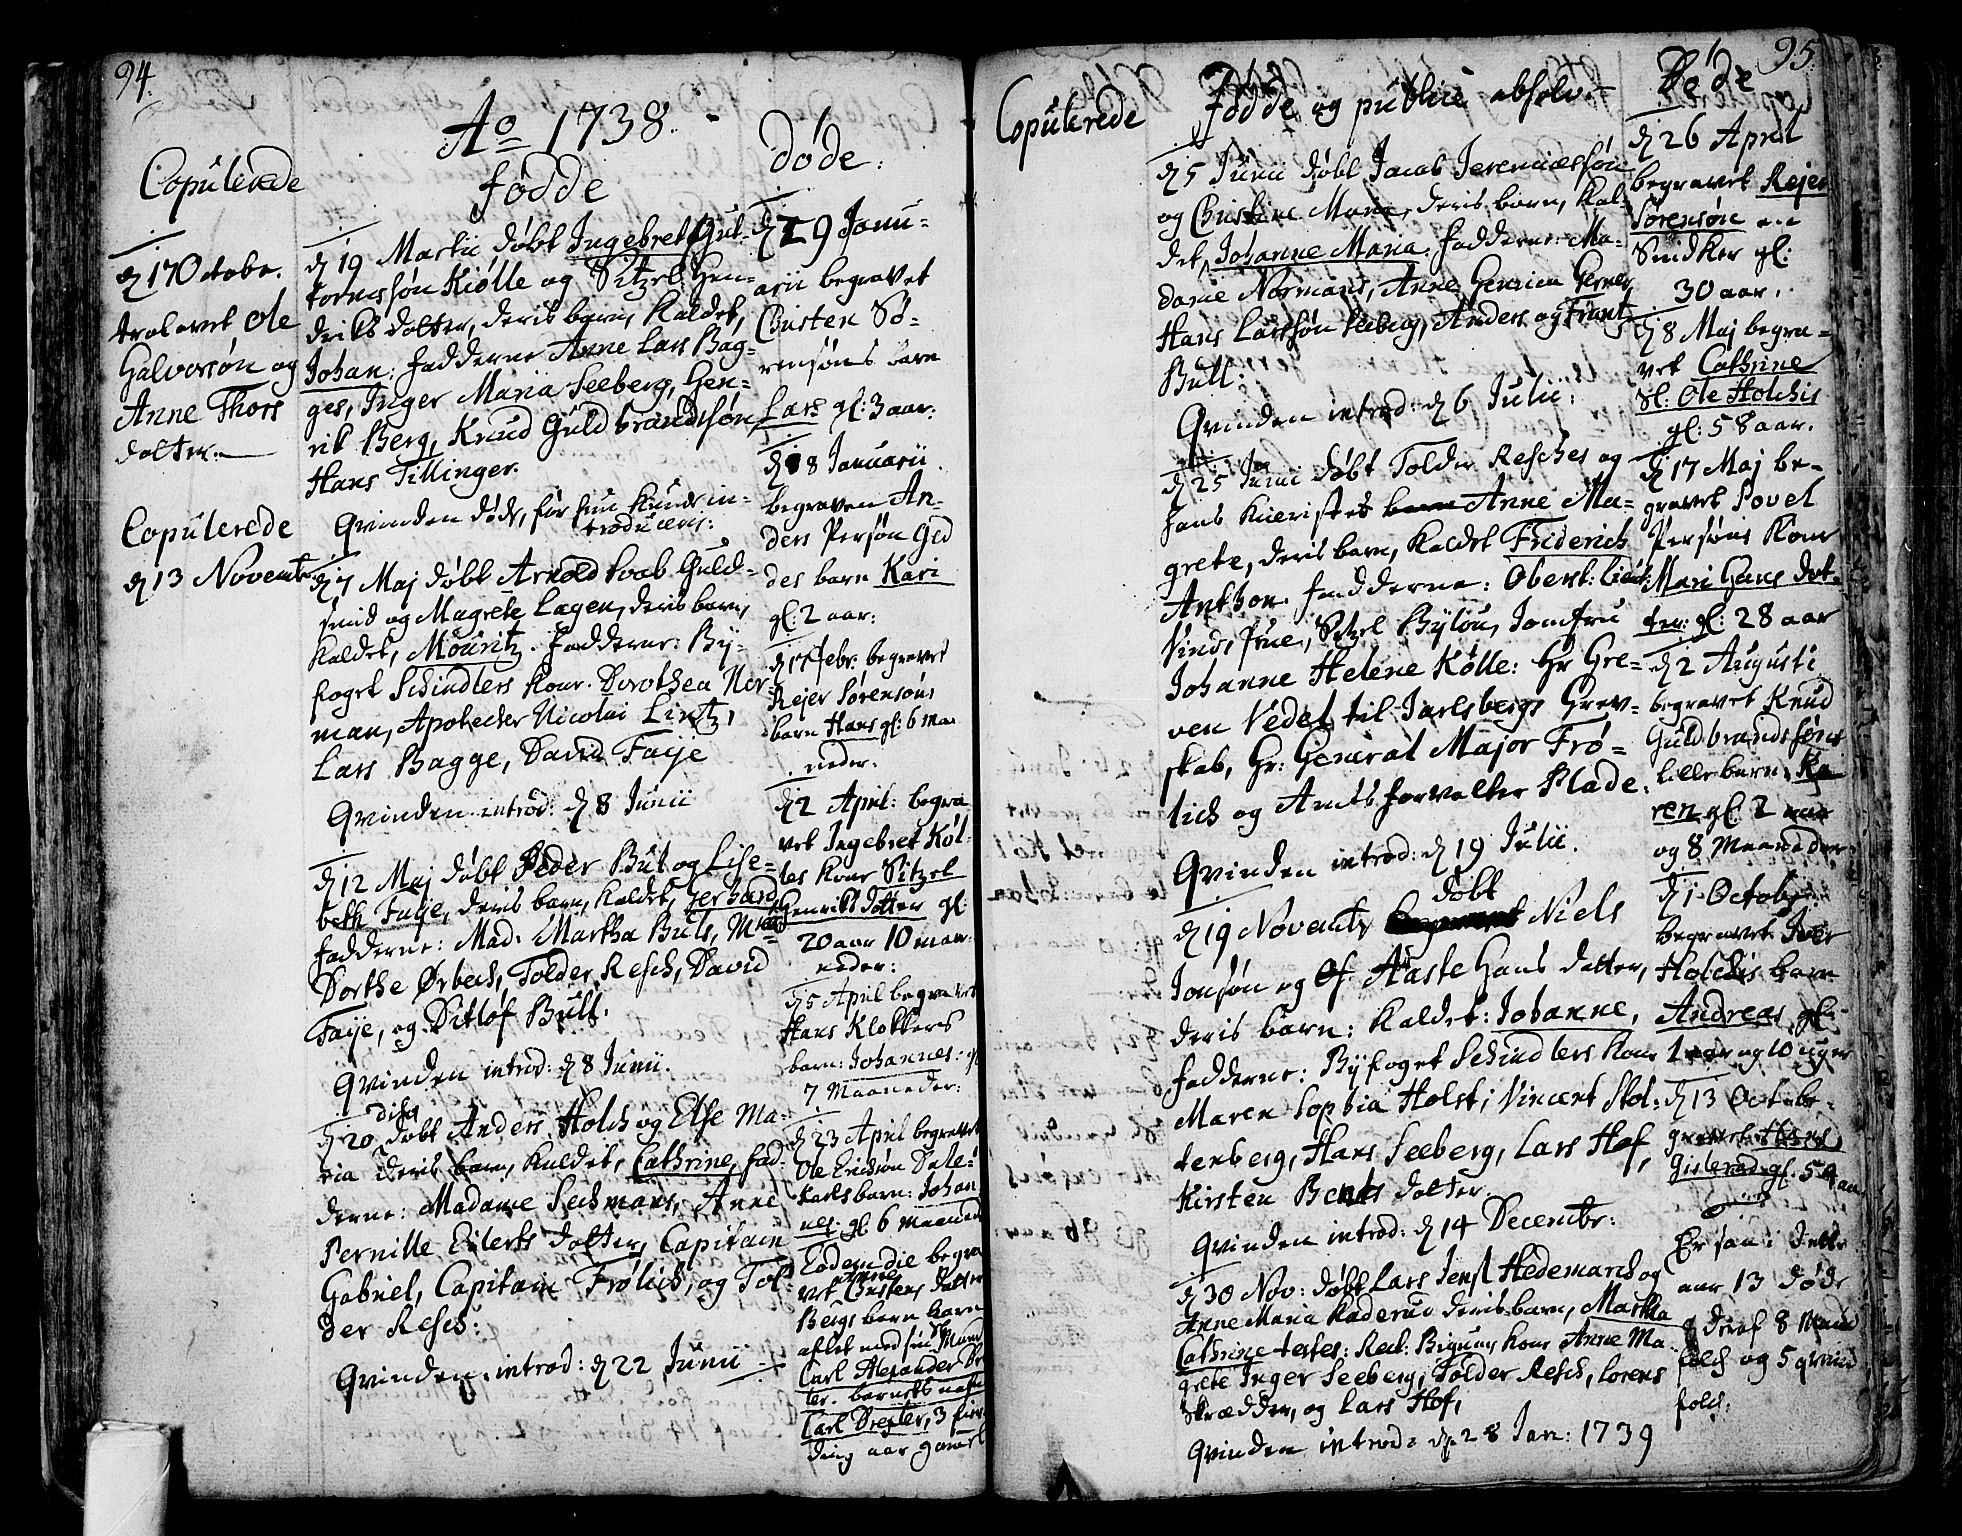 94.
Ao 1738.
Copulerede
d 17 Octobr.
trolovet Ole
Halvorsøn og
Anne Thors
dotter.
Copulerede
d 13 Novembr
fødde
d 19 Martii døbt Ingebret Gut-
tormssøn Kiølle og Sitzel Hen-
driks dotter, deris barn, kaldet,
Johan: fadderne Anne Lars Bag-
ges, Inger Maria Seeberg, Hen-
rik Berg, Knud Guldbrandssøn
Hans Tillinger.
Qvinden døde, før hun kunde in-
troduceris:
d 7 Maj døbt Arnold Guld-
smid og Magrete Lagen, deris barn,
kaldet, Mouritz. fadderne: By-
foget Schindlers kone. Dorothea Nor
man, Apotecker Nicolai Lintz,
Lars Bagge, David Faije
Qvinden introd: d 8 Junii
d 12 Maj døbt Peder But og Lise-
beth Faije, deris barn, kaldet, Gerhard
fadderne: Mad. Martha Buls,
Dorthe Ørbech, Tolder Resch, David
Faije, og Ditløf Bull.
Qvinden introd: d 8 Junii.
d 20 dito døbt Anders Holch og Else Ma-
ria deris barn, kaldet, Cathrine, fad-
derne: Madame Sechmans, Anne
Pernille Eilerts dotter, Capitain
Gabriel, Capitain Frølich, og Tol-
der Resch:
Qvinden introd: d 22 Junii
døde:
d 29 Janu-
arii begravet
Christen Sø-
rensøns barn
Lars gl: 3 aar.
d 8 Januarii
begraven An-
ders Persøn
des barn Kari
gl: 2 aar:
d 17 Febr. begravet
Rejer Sørensøns
barn Hans gl: 6 maa
neder.
d 2 April: begra
vet Ingebret Køl-
les kone Sitzel
Henriks dotter gl:
20 aar 10 maa-
neder:
d 5 April begravet
Hans Klokkers
barn: Johannes: gl
7 Maaneder:
d 23 April begravet
Ole Erichsøn Dale-
karls barn: Johan
nes: gl. 6 maaned
Eodem die begra
vet Anne Christens datter
Bergs barn
aflet med sin
Carl Alexander Drex
ter. barnets nafn
Carl Drexler, 3 fier
ding aar gamel
95.
Copulerede
fødde og publice absolv:
d 5 Junii døbt Jacob Jeremiæssøn
og Christine Marie, deris barn, kal-
det, Johanne Maria. fadderne: Ma-
dame Normans, Anne Henrica Gerner,
Hans Larssøn Seeberg, Anders og Frantz
Bull:
Qvinden introd: d 6 Julii:
d 25 Junii døbt Tolder Resches og
hans Anne Ma-
grete, deris barn, kaldet Friderich
Anthon. fadderne: Oberst: Lieut:
Vinds frue, Sitzel Bylou, Jomfru
Johanne Helene Kølle: Hr Gre-
ven Vedel til Jarlsbergs Grev-
skab, Hr: General Major Frø-
lich og Amtsforvalter Blade.
Qvinden introd: d 19 Julii.
d 19 Novembr døbt Niels
Jonsøn og Aaste Hans datter,
deris barn: kaldet: Johanne,
fadderne: Byfoget Schindlers kone
Maren Sophia Holst, Vincent Stol-
tenberg, Hans Seeberg, Lars Hof,
Kirsten Bents dotter
Qvinden introd: d 14 Decembr:
d 30 Nov: døbt Lars Jens: Hedemarch og
Anne Maria Raderud deris barn, Martha
Cathrine testes: Rect: kone Anne Ma-
grete Inger Seeberg, Tolder Resch, Lorens
Skrædder, og Lars Hof,
Qvinden introd: d 28 Jan: 1739
Døde
d 26 April
begravet Rejer
Sørensøn en
Snidker gl:
30 aar.
d 8 Maj begra-
vet Cathrine
Sl: Ole Holchis
gl: 58 aar.
d 17 Maj be-
gravet Povel
Persøns kone
Mari Hans dot-
ter gl: 28 aar
d 2 Augusti
begravet Knud
Guldbrandssøns
lille barn: Ka
ren gl: 2 aar
og 8 Maaneder
d 1 Octobr:
begravet Iver
Holchis barn
Andreas, gl:
1 aar og 10 uger
d 13 Octobr be-
gravet Hans
Gislerød gl: 59 aar
Er saa i dette
aar 13 døde
deraf 8 Mand
folch og 5 qvind
folch: